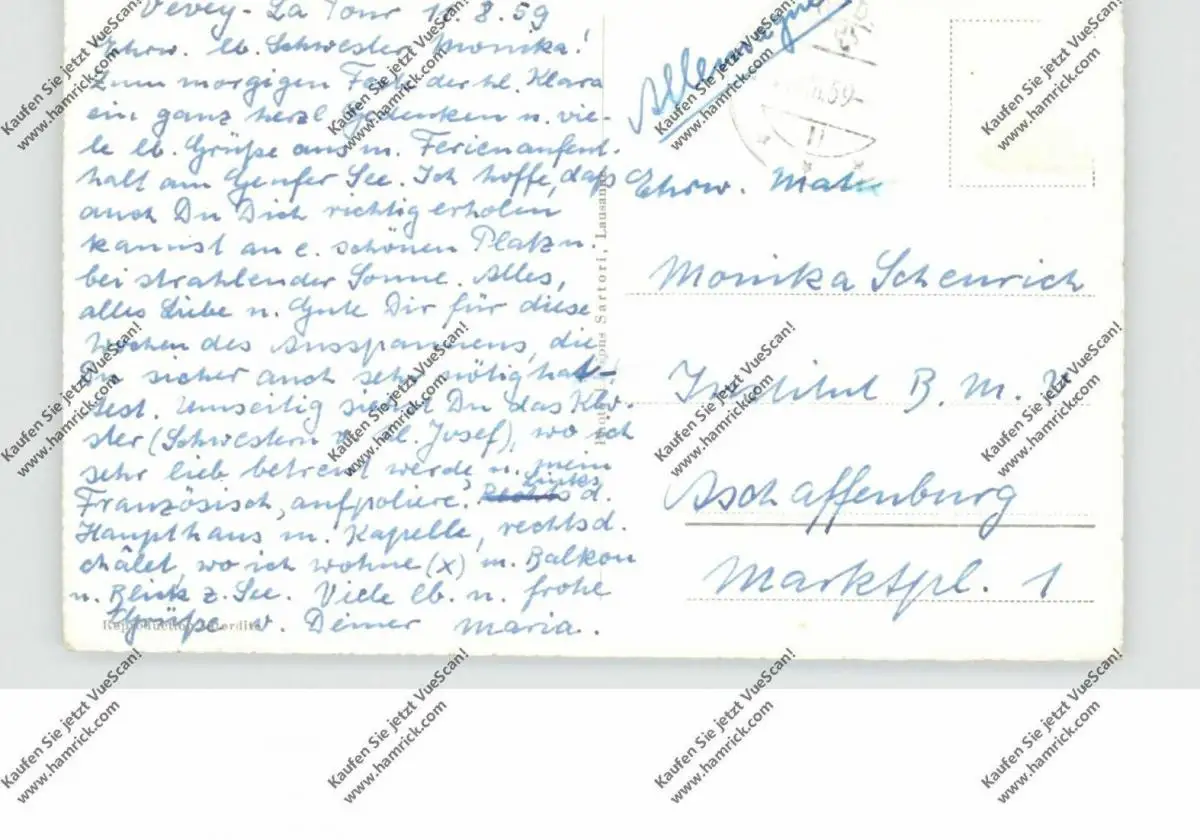 Vevey - La Tour 11.8.59
Ehrw. lb. Schwester Monika!
Zum morgigen Fest der hl. Klara
ein ganz herzl Gedenken u. vie-
le lb. Grüße aus m. Ferienaufent-
halt am Genfer See. Ich hoffe, daß
auch Du Dich richtig erholen
kannst an e. schönen Platz u.
bei strahlender Sonne. Alles,
alles Liebe u. Gute Dir für diese
Wochen des Ausspannens, die
Du sicher auch sehr nötig hat-
test. Umseitig siehst Du das Klo-
ster (Schwestern v. hl. Josef), wo ich
sehr lieb betreut werde u. mein
Französisch "aufpoliere". Links d.
Haupthaus m. Kapelle, rechts d.
châlet, wo ich wohne (x) m. Balkon
u. Blick z. See. Viele lb. u. frohe
Grüße v. Deiner Maria.
Reproduction interdite
Sartori, Lausanne
Allemagne
59
Ehrw. Mater
Monika Scheurich
Institut B. M. V.
Aschaffenburg
Marktpl. 1
Kaufen Sie jetzt VueScan!
www.hamrick.com
Kaufen Sie jetzt VueScan!
www.hamrick.com
Kaufen Sie jetzt VueScan!
www.hamrick.com
Kaufen Sie jetzt VueScan!
www.hamrick.com
Kaufen Sie jetzt VueScan!
www.hamrick.com
Kaufen Sie jetzt VueScan!
www.hamrick.com
Kaufen Sie jetzt VueScan!
www.hamrick.com
Kaufen Sie jetzt VueScan!
www.hamrick.com
Kaufen Sie jetzt VueScan!
www.hamrick.com
Kaufen Sie jetzt VueScan!
www.hamrick.com
Kaufen Sie jetzt VueScan!
www.hamrick.com
Kaufen Sie jetzt VueScan!
www.hamrick.com